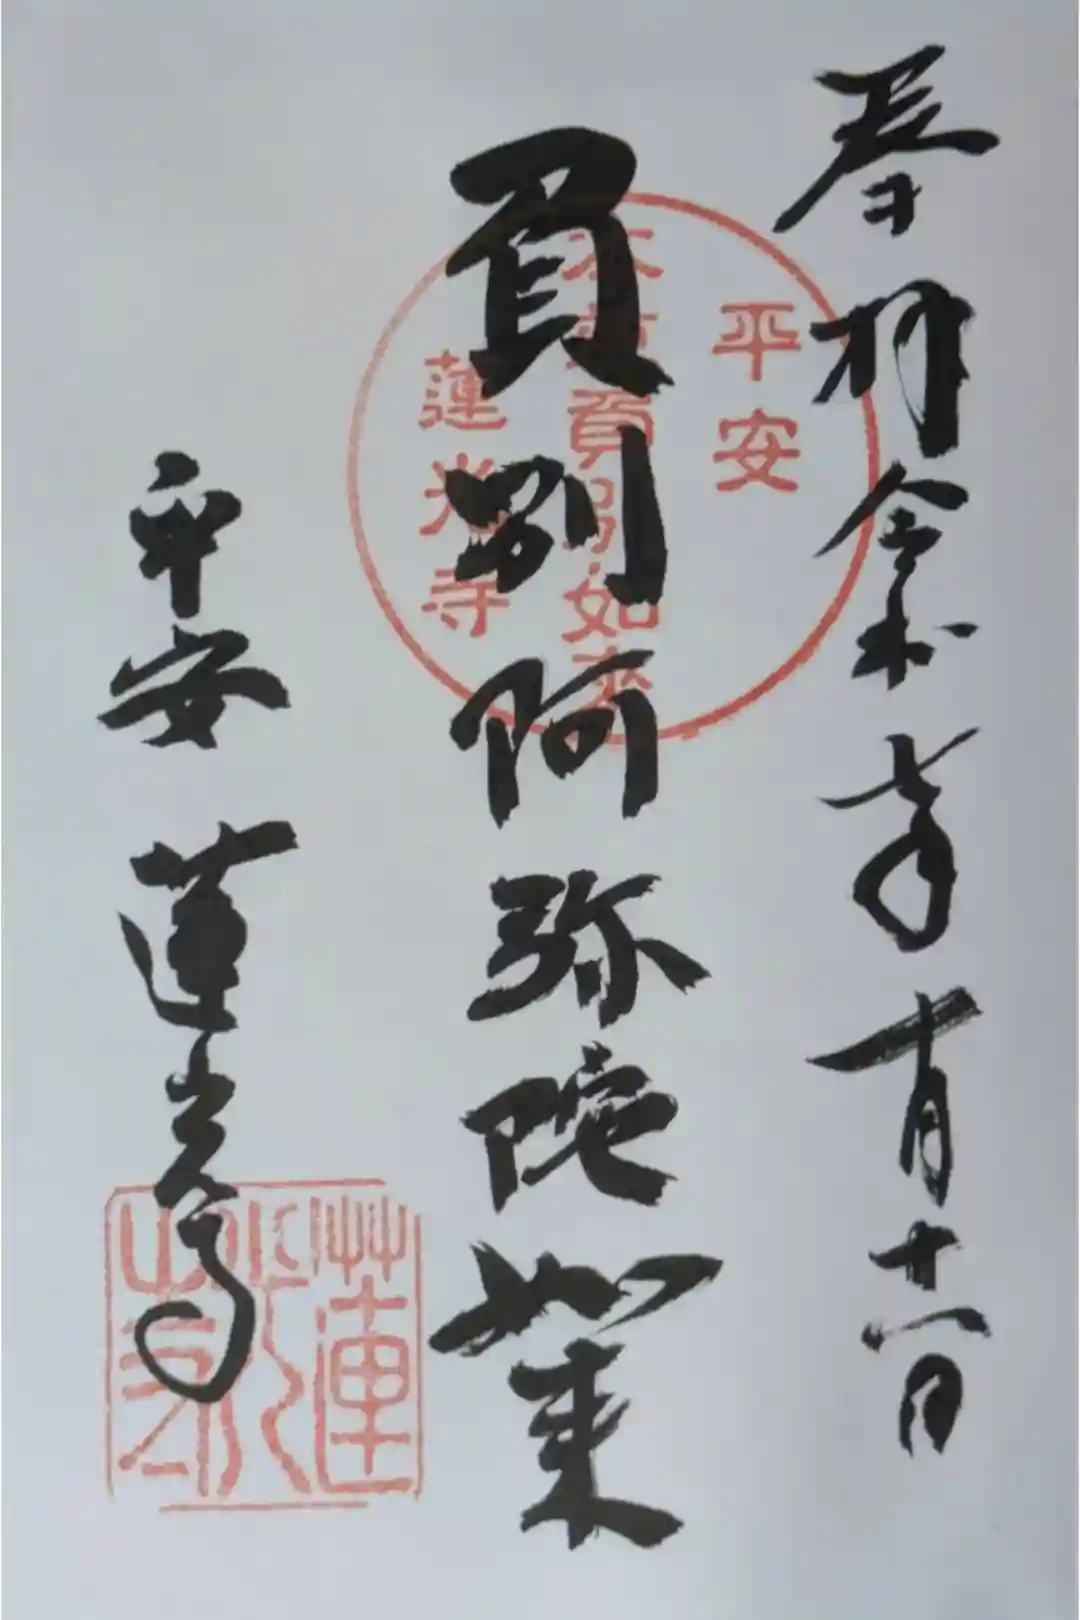 奉拝令和七年
負別阿弥陀如来
平安蓮光寺
平安
本尊負別如来
蓮光寺